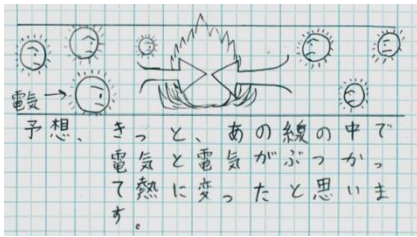 電気→
予想、きっと、あの線の中で
電気と電気がぶつかっ
て熱に変ったと思いま
す。